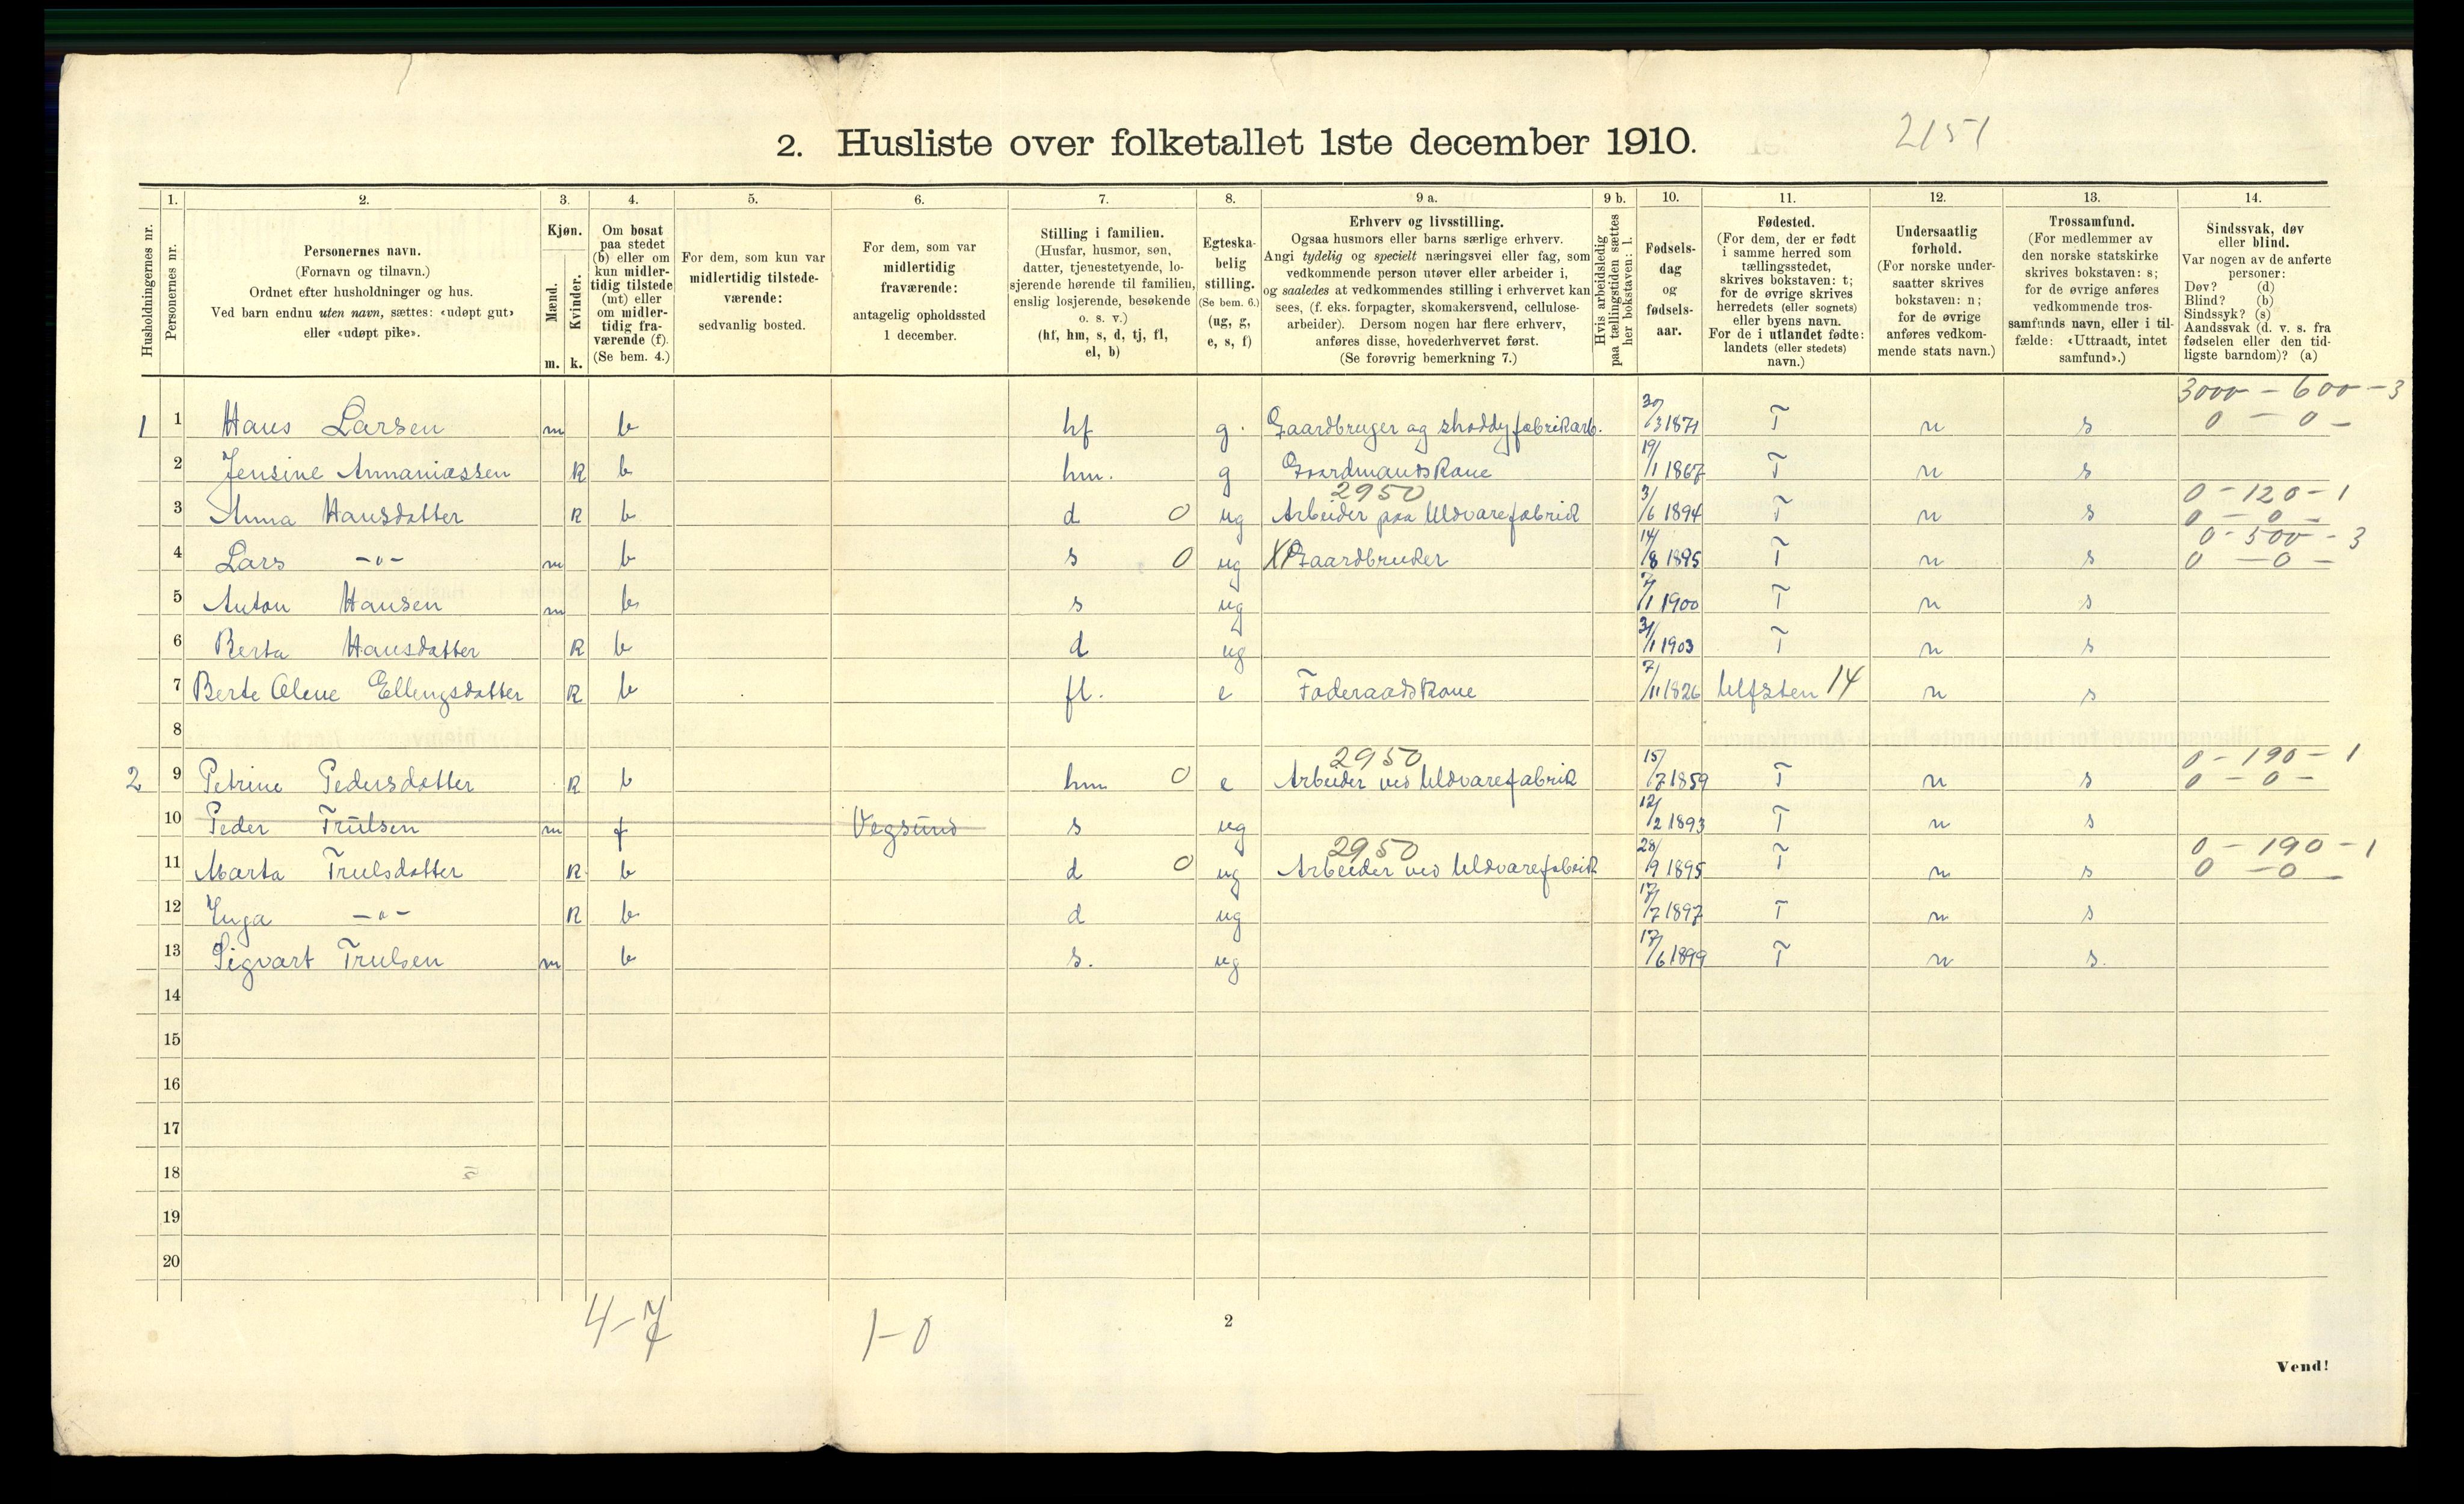 2. Husliste over folketallet 1ste december 1910. 2151
Husholdningernes nr.
1. Personernes nr.
2. Personernes navn. (Fornavn og tilnavn.) Ordnet efter husholdninger og hus. Ved barn endnu uten navn, sættes: «udøpt gut» eller «udøpt pike».
3. Kjøn. Mænd. m. Kvinder. k.
4. Om bosat paa stedet (b) eller om kun midlertidig tilstede (mt) eller om midlertidig fraværende (f). (Se bem. 4.)
5. For dem, som kun var midlertidig tilstedeværende: sedvanlig bosted.
6. For dem, som var midlertidig fraværende: antagelig opholdssted 1 december.
7. Stilling i familien. (Husfar, husmor, søn, datter, tjenestetyende, losjerende hørende til familien, enslig losjerende, besøkende o. s. v.) (hf, hm, s, d, tj, fl, el, b)
8. Egteskabelig stilling. (Se bem. 6.) (ug, g, e, s, f)
9 a. Erhverv og livsstilling. Ogsaa husmors eller barns særlige erhverv. Angi tydelig og specielt næringsvei eller fag, som vedkommende person utøver eller arbeider i, og saaledes at vedkommendes stilling i erhvervet kan sees, (f. eks. forpagter, skomakersvend, cellulosearbeider). Dersom nogen har flere erhverv, anføres disse, hovederhvervet først. (Se forøvrig bemerkning 7.)
9 b. Hvis arbeidsledig paa tællingstiden sættes her bokstaven: l.
10. Fødselsdag og fødselsaar.
11. Fødested. (For dem, der er født i samme herred som tællingsstedet, skrives bokstaven: t; for de øvrige skrives herredets (eller sognets) eller byens navn. For de i utlandet fødte: landets (eller stedets) navn.)
12. Undersaatlig forhold. (For norske undersaatter skrives bokstaven: n; for de øvrige anføres vedkommende stats navn.)
13. Trossamfund. (For medlemmer av den norske statskirke skrives bokstaven: s; for de øvrige anføres vedkommende trossamfunds navn, eller i tilfælde: «Uttraadt, intet samfund».)
14. Sindssvak, døv eller blind. Var nogen av de anførte personer: Døv? (d) Blind? (b) Sindssyk? (s) Aandssvak (d. v. s. fra fødselen eller den tidligste barndom)? (a)
3000 - 600 - 3
1 1 Hans Larsen m b hf g. Gaardbruger og shoddyfabrikarb. 30/3 1871 T n s 0 - 0 -
2 Jensine Annaniassen k b hm. g Gaardmandskone 19/1 1867 T n s
2950 0 - 120 - 1
3 Anna Hansdatter k b d 0 ug Arbeider paa Uldvarefabrik 3/6 1894 T n s 0 - 0 -
0 - 500 - 3
4 Lars -"- m b s 0 ug X Gaardbruker 14/8 1895 T n s 0 - 0 -
5 Anton Hansen m b s ug 7/1 1900 T n s
6 Berta Hansdatter k b d ug 31/1 1903 T n s
7 Berte Olene Ellingsdatter k b fl. e Foderaadskone 7/11 1826 Ulfsten 14 n s
8
2950 0 - 190 - 1
2 9 Petrine Pedersdatter k b hm 0 e Arbeider ved Uldvarefabrik 15/7 1859 T n s 0 - 0 -
10 Peder Trulsen m f Vegsund s ug 12/2 1893 T n s
2950 0 - 190 - 1
11 Marta Trulsdatter k b d 0 ug Arbeider ved Uldvarefabrik 28/9 1895 T n s 0 - 0 -
12 Inga -"- k b d ug 17/7 1897 T n s
13 Sigvart Trulsen m b s. ug 17/6 1899 T n s.
14
15
16
17
18
19
20
4-7 1-0
2
Vend!